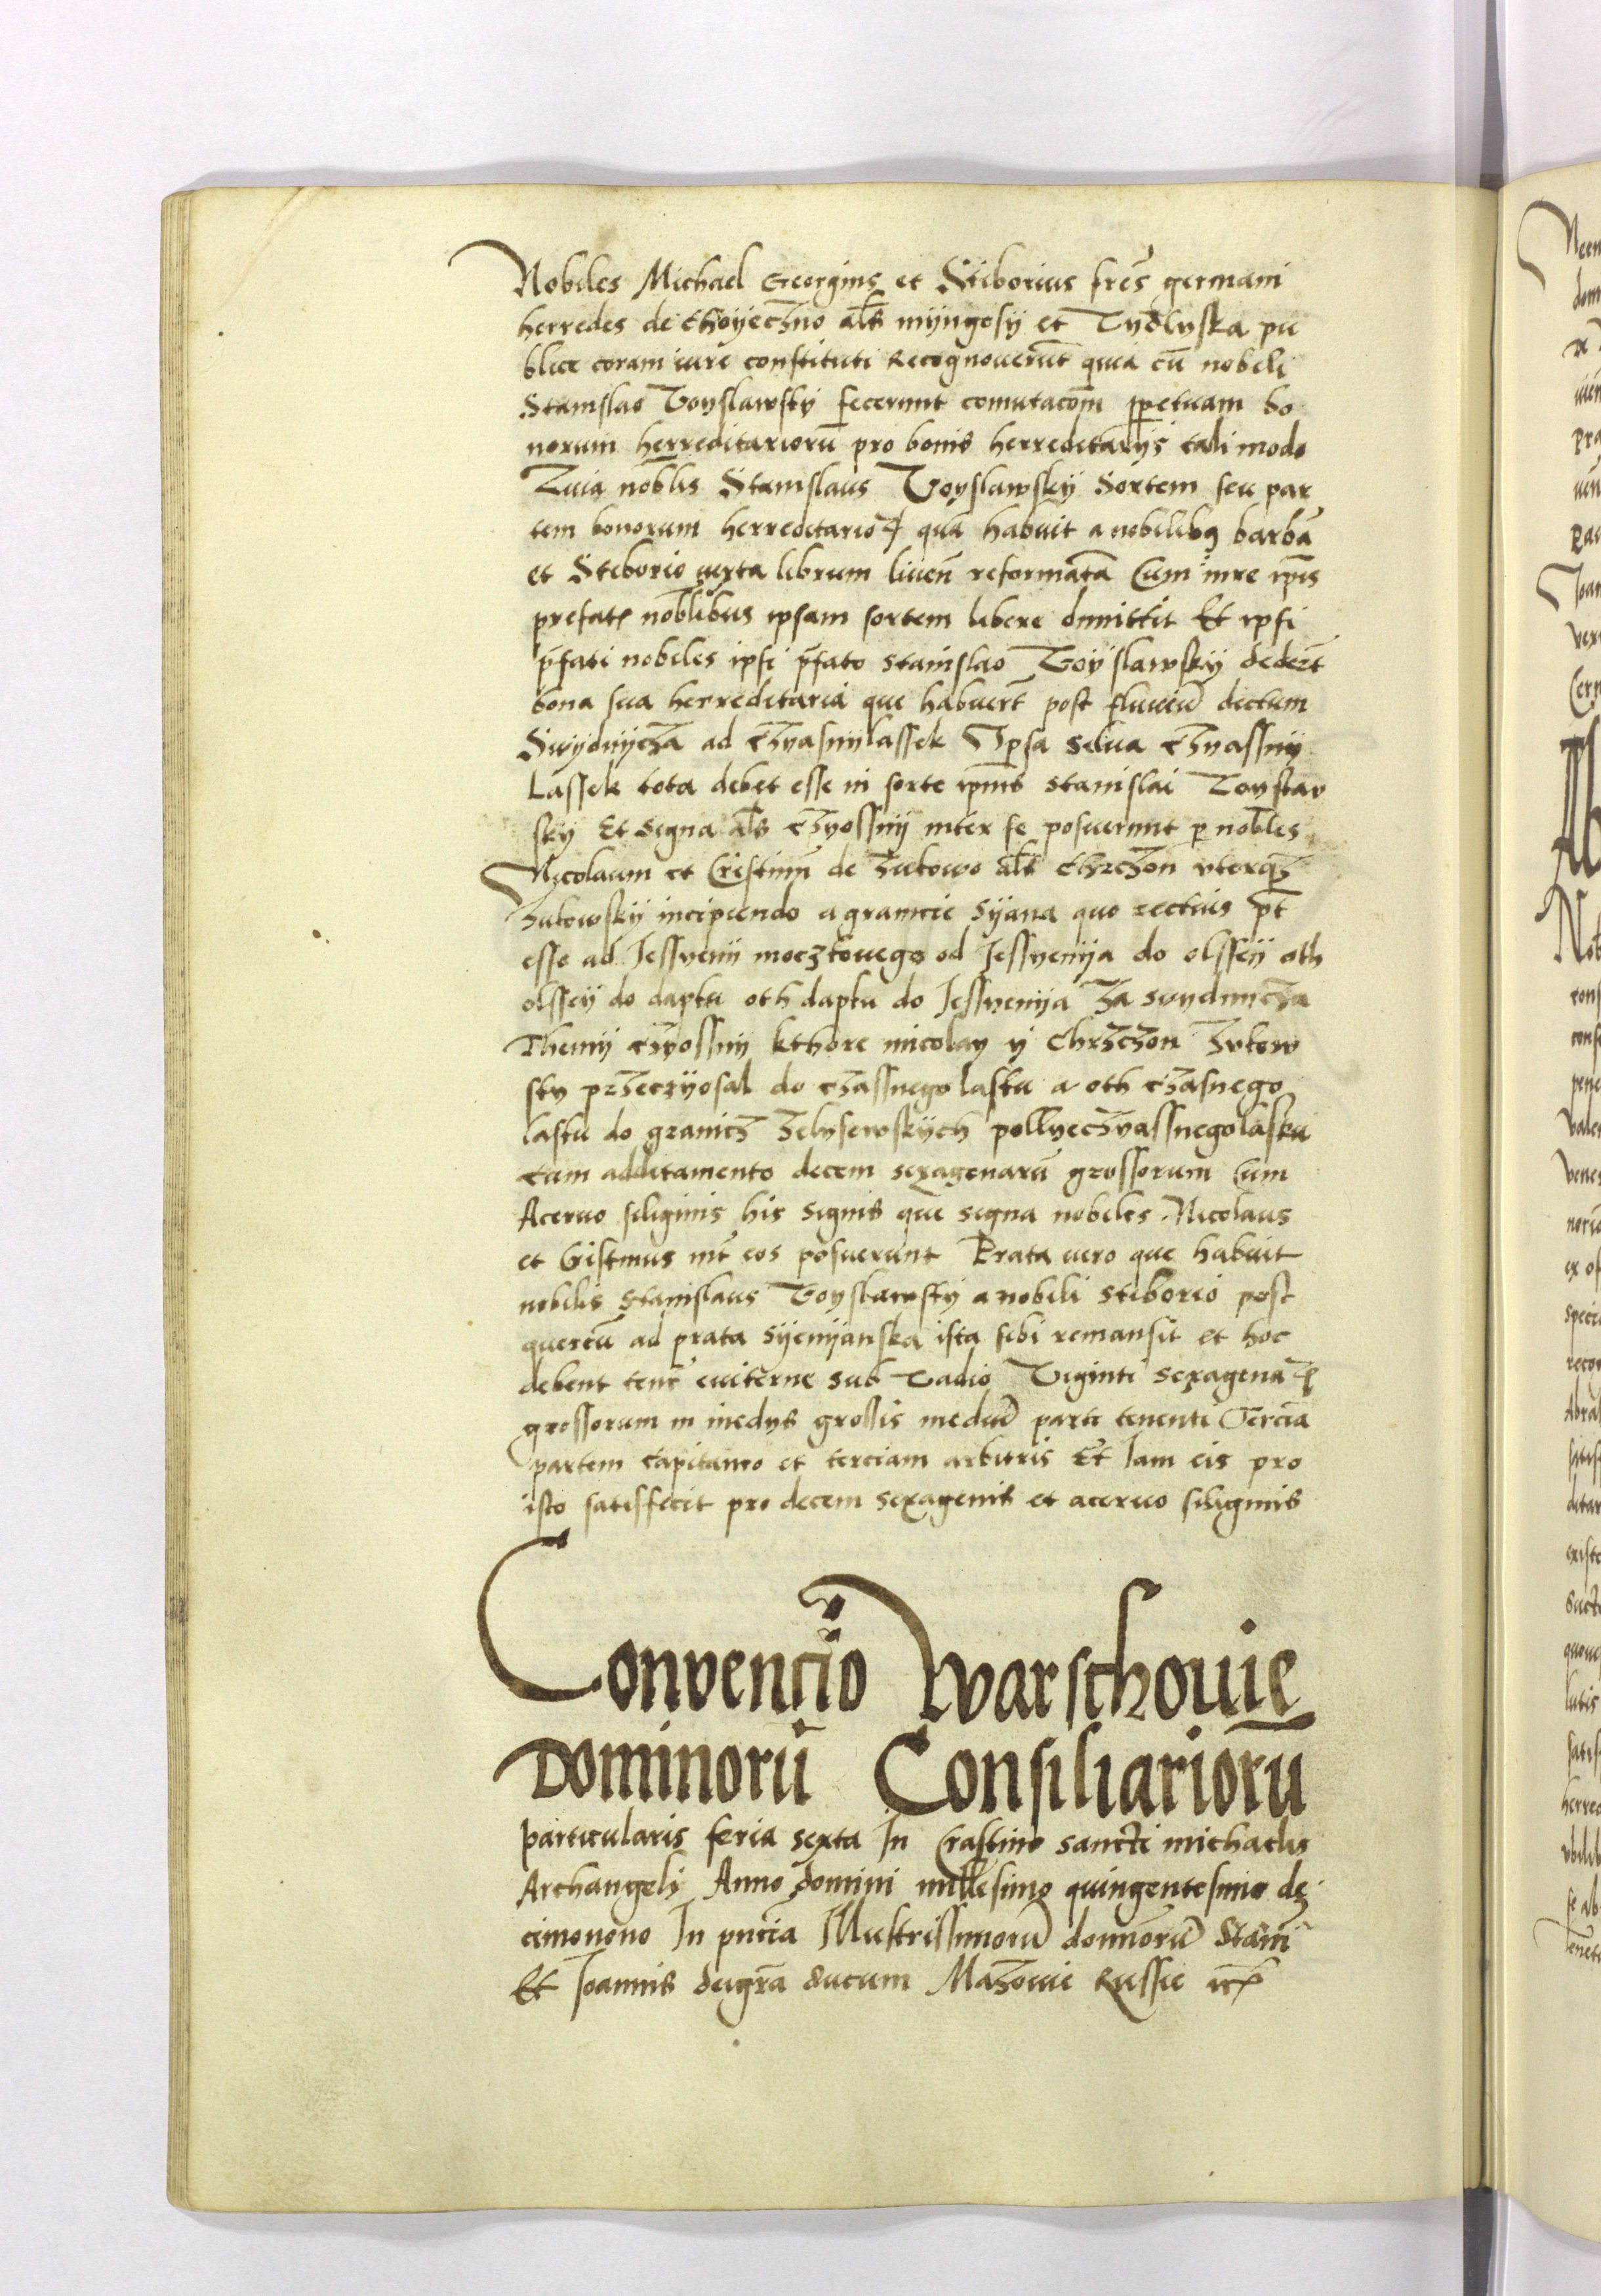 Nobiles Michael Georgius et Stiborius fres̄ germani
herredes de Choÿeczno als̄ mÿngosÿ et Vydlyska pu
blice coram iure constituti Recognouerūt quia cū nobili
Stanislao Voyslawsky fecerunt comutacōm ꝑpetuam bo
norum herreditariorū pro bonis herreditarÿs tali modo
Quia nobl̄is Stanislaus Voyslawskÿ Sortem seu par
tem bonorum herreditarioꝝ quā habuit a nobilibꝰ barbā
et Stiborio iuxta librum liuen̄ reformatā Cum iure ip̄is
prefatꝭ nobl̄ibus ipsam sortem libere dimittit Et ipsi
p̄fati nobiles ipsi p̄fato stanislao Voÿslawskÿ deder̄t
bona sua herreditaria que habuer̄t post fluuiū dictum
Swÿdnÿcza ad czyasnylassek Ipsa silua czyassnÿ
Lassek tota debet esse in sorte ip̄ius stanislai Voyslaw
skÿ Et signa als̄ czyossnÿ inter se posuerunt ꝑ nobl̄es
Nicolaum et Cristinū de zukowo als̄ chrczon vterqꝫ
zukowskÿ incipiendo a granicie Sÿana quo rectius pt̄
esse ad Jessyenÿ moczkouego od Jessyenÿa do olssÿ oth
olssÿ do daptu oth daptu do Jessyenÿa za swydnicza
Themÿ czyossnÿ kthore micolay ÿ Chrzczon zukow
sky przeczÿosal do czassnego lasku a oth czasnego
lasku do granicz zelysewskÿch pollyeczyassnegolasku
cum additamento decem sexagenarū grossorum Cum
Aceruo siliginis his signis que signa nobiles Nicolaus
et Cristinus int̄ eos posuerunt Prata uero que habuit
nobilis Stanislaus Voyslawsky a nobili stiborio post
quercū ad prata sÿenÿanska ista sibi remansit et hoc
debent tene͂r euiterne sub Vadio Viginti sexagenaꝝ
grossorum in medÿs grossis mediā parti tenenti Terciā
partem capitaneo et terciam arbitris Et Jam eis pro
isto satisfecit pro decem sexagenis et aceruo siliginis
Conuencio Warschouie
Dominorū Consiliariorū
particularis feria sexta In Crastino sancti michaelis
Archangeli Anno domini millesimo quingentesimo de
cimonono In pn̄cia Illustrissimorū dominorū Stani͂
Et Joannis deigrā ducum Mazouie Russie etc̄